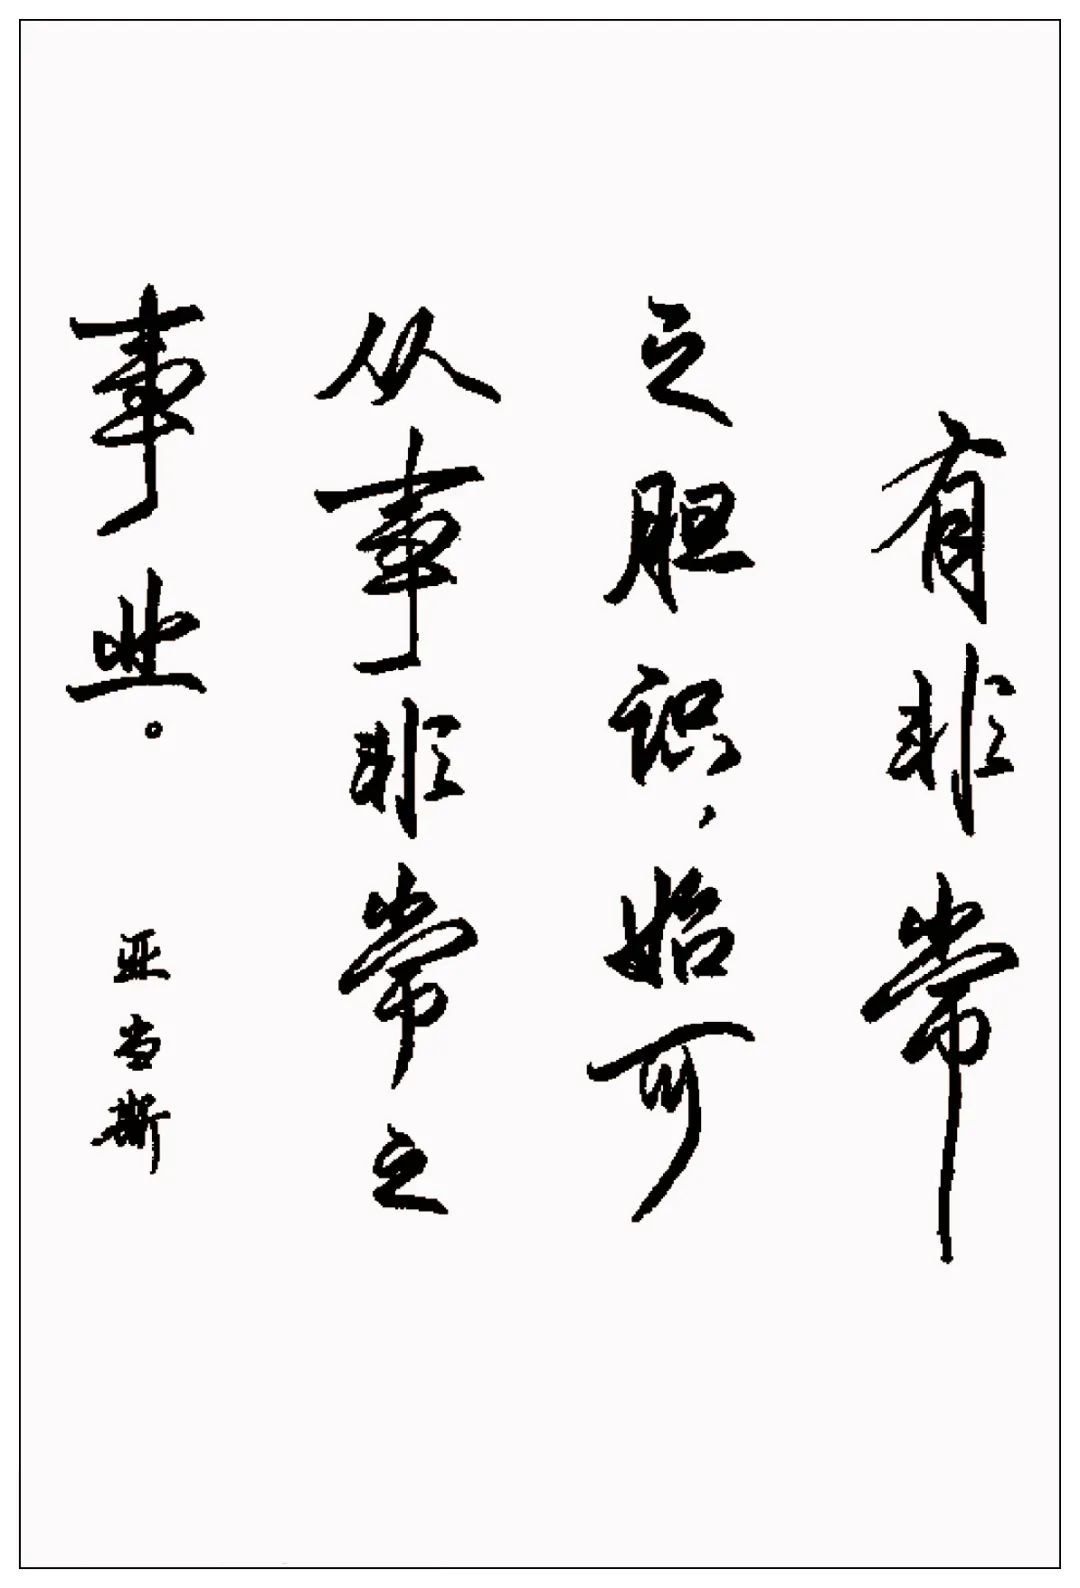 有非常
之胆识，始可
从事非常之
事业。
亚当斯